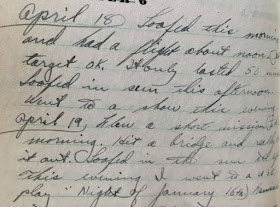 April 18) Loafed this morning
and had a flight about noon. Hit
target OK. It only lasted 50 min
Loafed in sun this afternoon
Went to a show this evening
April 19, Flew a short mission
morning. Hit a bridge and
it out. Loafed in the sun
This evening I went to a
play "Night of January 16th)